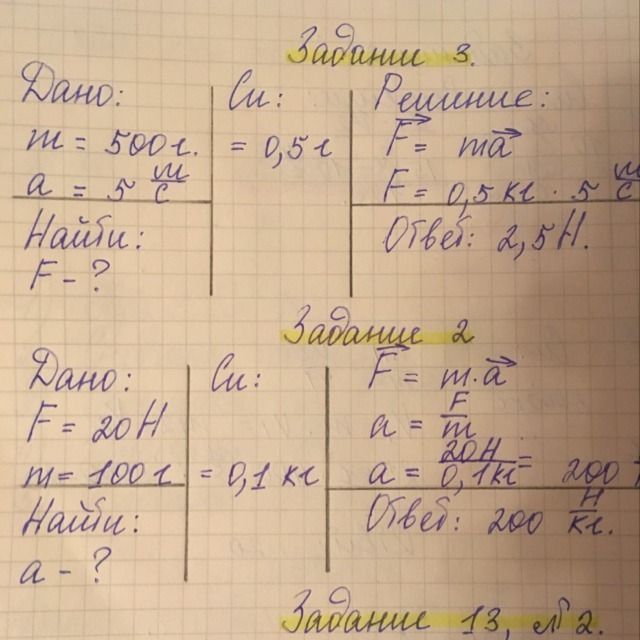 Задание 3.
Дано:
m = 500 г.
a = 5 м/с
Найти:
F - ?
Си:
= 0,5 г
Решение:
F = ma
F = 0,5 кг · 5 м/с
Ответ: 2,5 Н.
Задание 2
Дано:
F = 20 Н
m = 100 г
Найти:
a - ?
Си:
= 0,1 кг
F = m·a
a = F/m
a = 20Н/0,1кг = 200
Ответ: 200 Н/кг.
Задание 13, №2.